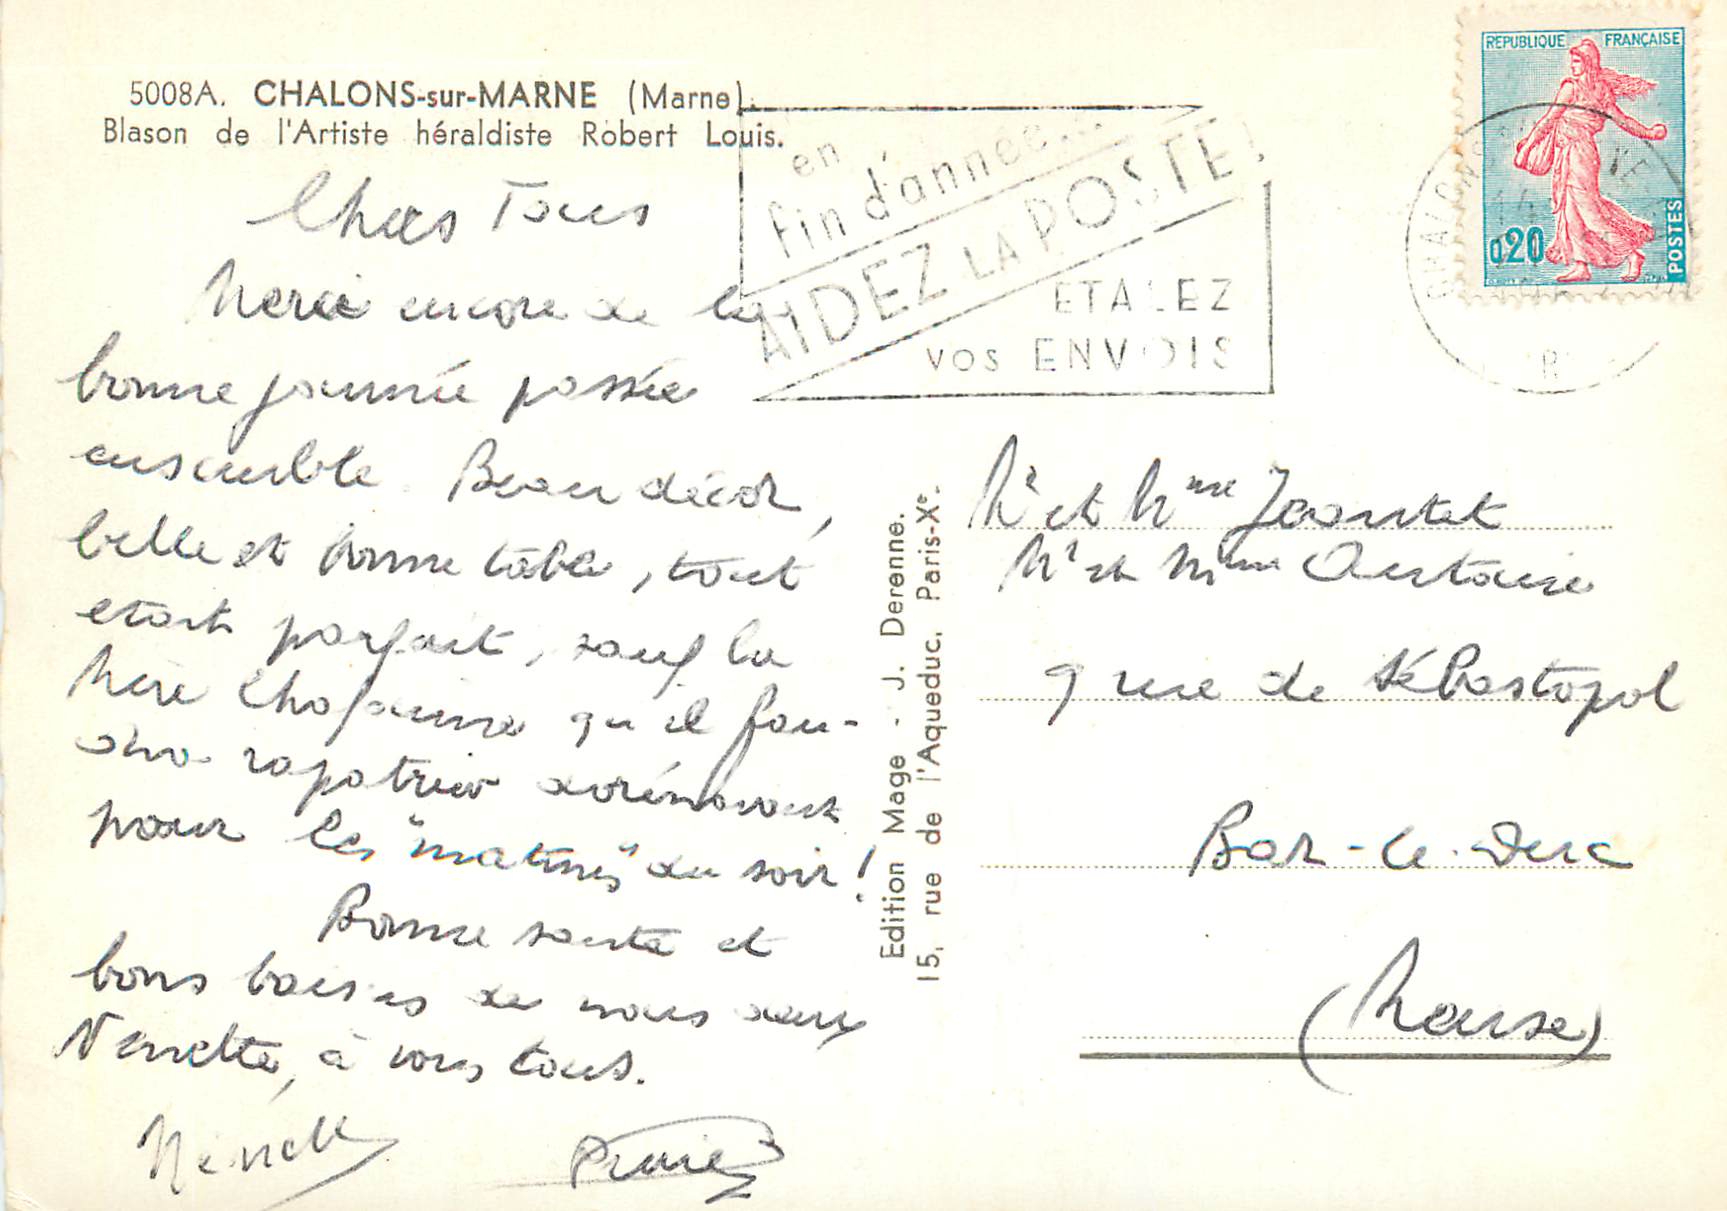 5008A. CHALONS-sur-MARNE (Marne).
Blason de l'Artiste héraldiste Robert Louis.
en
fin d'année...
AIDEZ LA POSTE!
ETALEZ
VOS ENVOIS
REPUBLIQUE FRANÇAISE
0,20
POSTES
Chers Tous
Merci encore de la
bonne journée passée
ensemble. Beau décor,
belle et bonne table, tout
etait parfait, sauf la
Mère qu'il fau-
dra rapatrier dorénavant
pour les "matines" du soir!
Bonne santé et
bons baisers de nous deux
Nénette, à vous tous.
Nénette
Pierre
Edition Mage - J. Derenne.
15, rue de l'Aqueduc, Paris-Xe.
Mr et Mme
Mr et Mme Antoine
9 rue de Sébastopol
Bar-le-Duc
(Meuse)